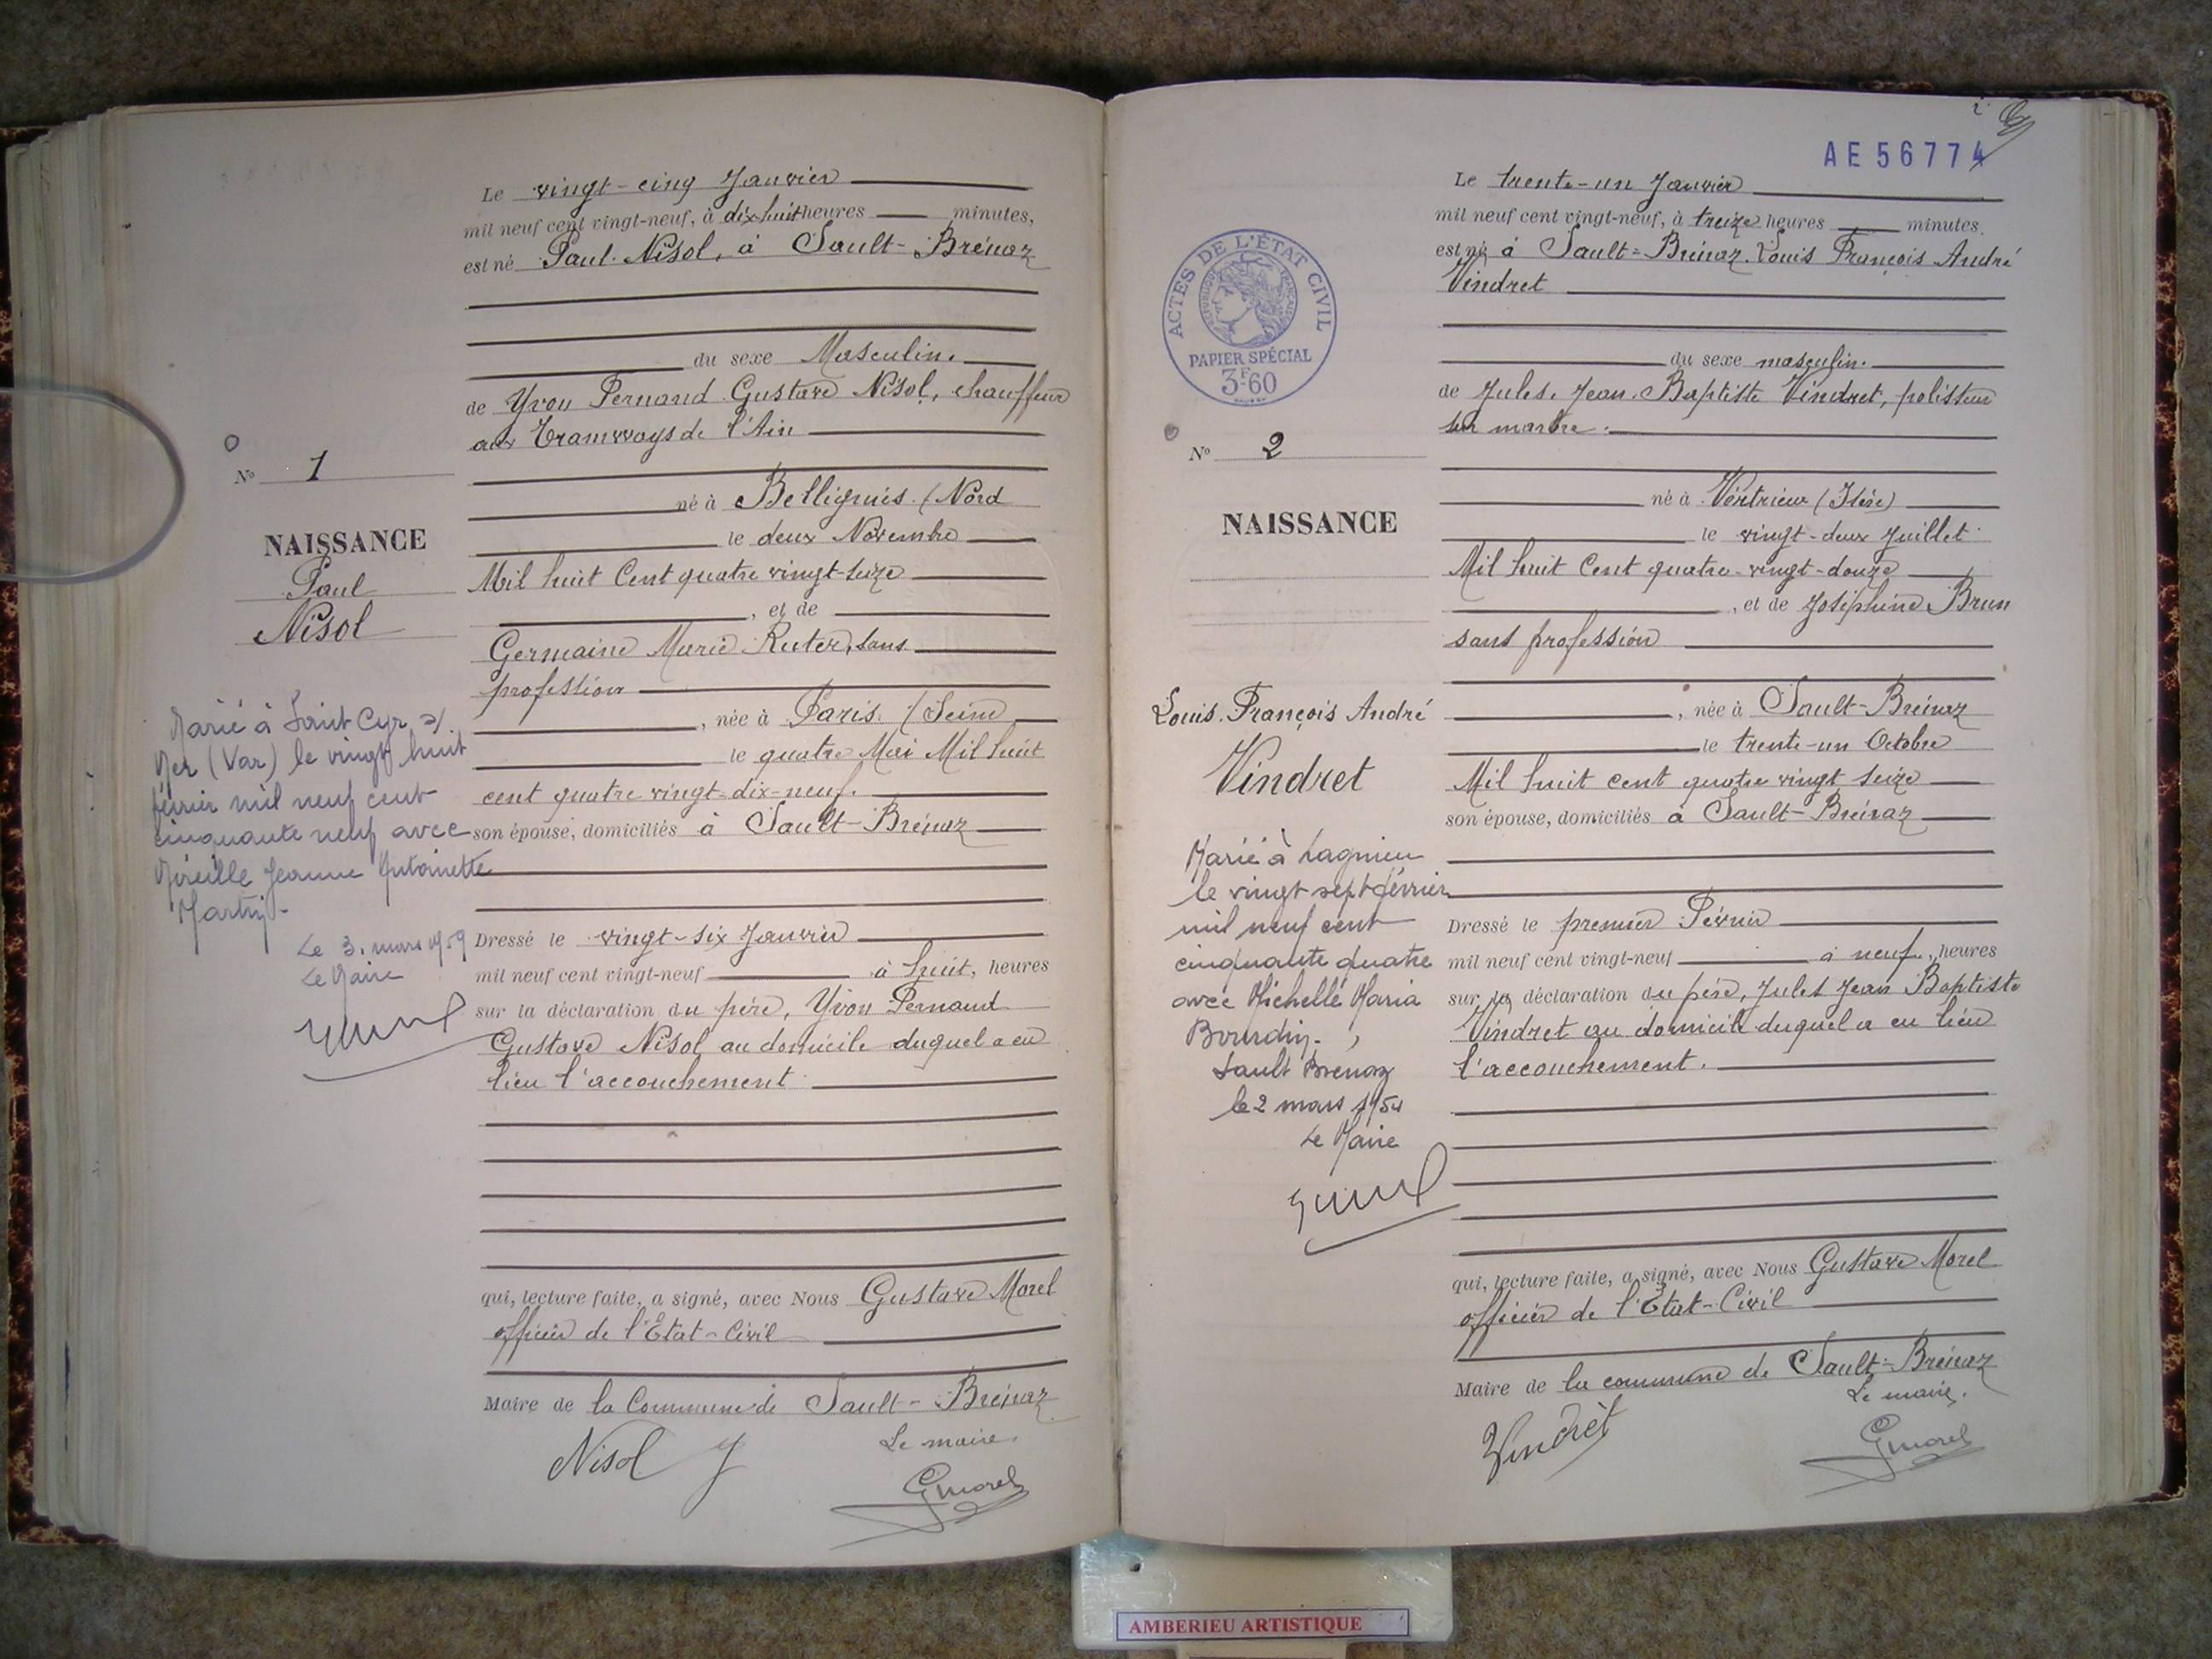 Le vingt-cinq Janvier
mil neuf cent vingt-neuf, à dix-huit heures minutes,
est né Paul Nisol, à Sault-Brénaz
du sexe Masculin.
de Yvon Fernand Gustave Nisol, chauffeur
aux Tramways de l'Ain
No 1
né à Bellignies (Nord
NAISSANCE
le deux Novembre
Paul
Mil huit Cent quatre vingt-seize
, et de
Nisol
Germaine Marie Ruter, sans
profession
, née à Paris (Seine
le quatre Mai Mil huit
cent quatre vingt-dix-neuf.
son épouse, domiciliés à Sault-Brénaz
Marié à Saint Cyr s/
Mer (Var) le vingt huit
février mil neuf cent
cinquante neuf avec
Mireille Jeanne Antoinette
Le 3. mars 1959
Le Maire
Dressé le vingt-six Janvier
mil neuf cent vingt-neuf à huit, heures
sur la déclaration du père, Yvon Fernand
Gustave Nisol au domicile duquel a eu
lieu l'accouchement
qui, lecture faite, a signé, avec Nous Gustave Morel
officier de l'Etat-Civil
Maire de la Commune de Sault-Brénaz
Le maire.
Nisol Y
GMorel
2
AE56774
Le trente-un Janvier
mil neuf cent vingt-neuf, à treize heures minutes.
est né à Sault-Brénaz Louis François André
Vindret
ACTES DE L'ÉTAT CIVIL
REPUBLIQUE FRANÇAISE
PAPIER SPÉCIAL
3F60
du sexe masculin.
de Jules Jean Baptiste Vindret, polisseur
sur marbre.
No 2
né à Vertrieu (Isère)
NAISSANCE
le vingt-deux Juillet
Mil huit Cent quatre-vingt-douze
, et de Joséphine Brun
sans profession
Louis François André
Vindret
, née à Sault-Brénaz
le trente-un Octobre
Mil huit cent quatre vingt seize
son épouse, domiciliés à Sault-Brénaz
Marié à Lagnieu
le vingt sept février
mil neuf cent
cinquante quatre
avec Michelle Maria
Bourdin.
Sault Brénaz
le 2 mars 1954
Le Maire
Dressé le premier Février
mil neuf cent vingt-neuf à neuf, heures
sur la déclaration du père, Jules Jean Baptiste
Vindret au domicile duquel a eu lieu
l'accouchement.
qui, lecture faite, a signé, avec Nous Gustave Morel
officier de l'Etat-Civil
Maire de la commune de Sault-Brénaz
Le maire.
Vindret
GMorel
AMBERIEU ARTISTIQUE